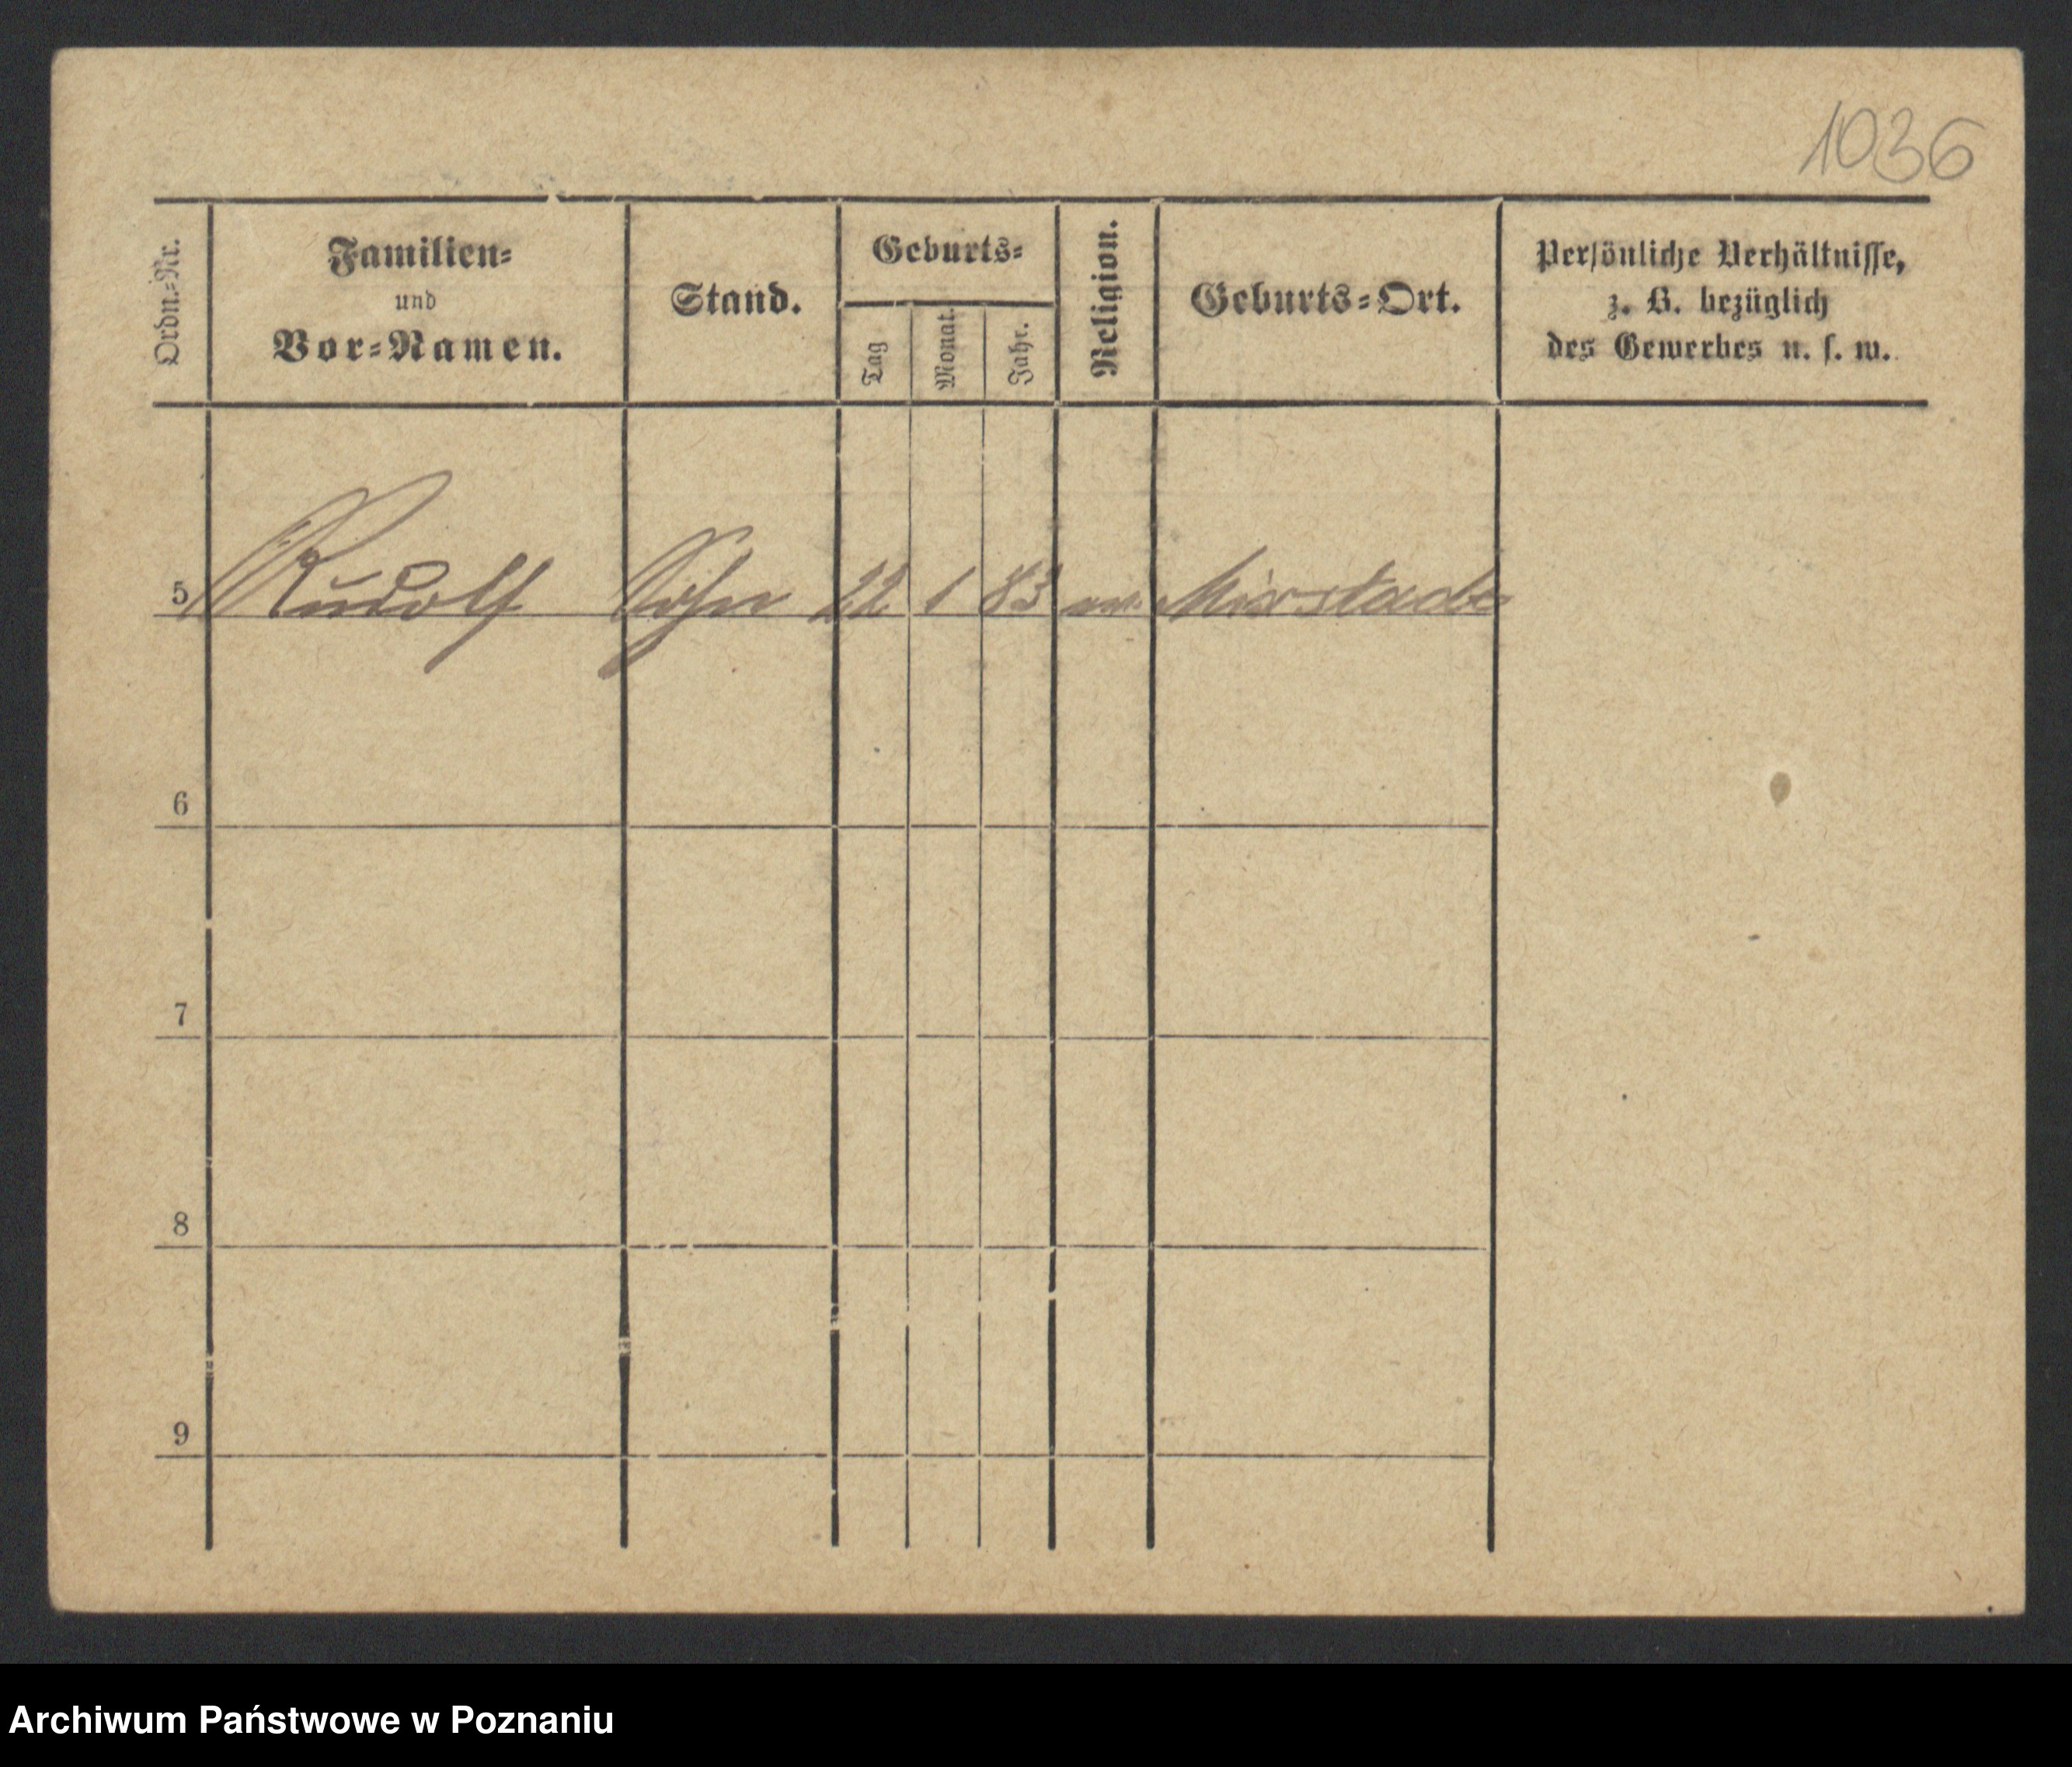 1036
Ordn.-Nr.
Familien-
und
Vor-Namen.
Stand.
Geburts-
Tag
Monat.
Jahr.
Religion.
Geburts-Ort.
Persönliche Verhältnisse,
z. B. bezüglich
des Gewerbes u. s. w.
5 Rudolf Sohn 22 1 83 Mixstadt
6
7
8
9
Archiwum Państwowe w Poznaniu